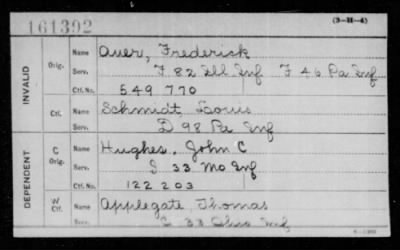 161392 (3-H-4)
INVALID
Orig. Name Auer, Frederick
Serv. F 82 Ill Inf F 46 Pa Inf
Ctf. No. 549 770
Ctf. Name Schmidt Louis
Serv. D 98 Pa Inf
DEPENDENT
C Orig. Name Hughes, John C
Serv. I 33 Mo Inf
Ctf. No. 122 203
W Ctf. Name Applegate, Thomas
Serv. C 33 Ohio Inf